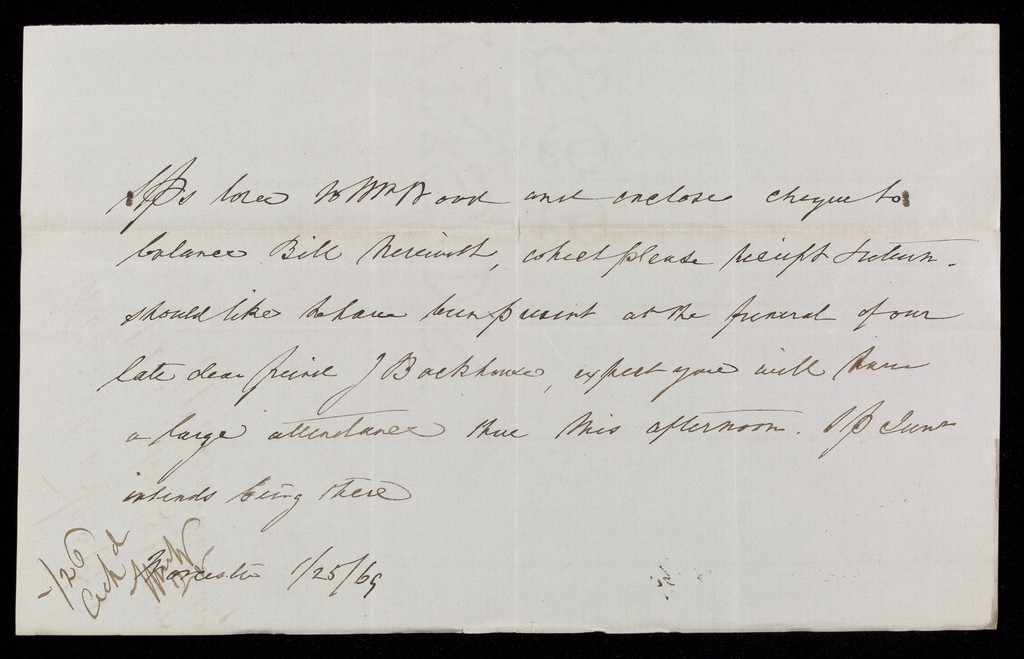 love to Wm Wood and enclose cheque to
balance Bill herewith, which please receipt & return.
should like to have been present at the funeral of our
late dear friend J Backhouse, expect you will have
a large attendance there this afternoon. Junr
intends being there
Worcester 1/25/69
1/26
Ackd